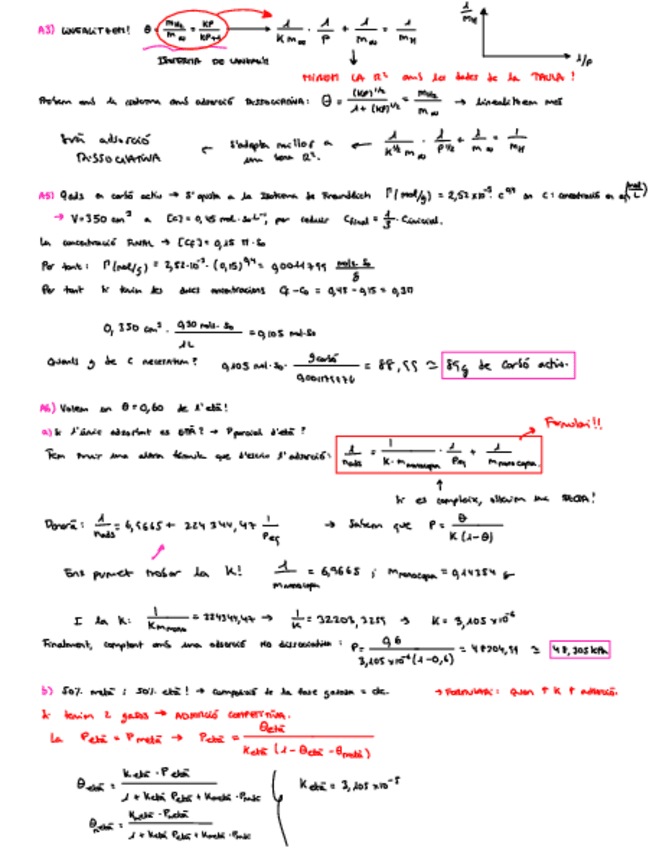 A3) LINEALITZEM! θ = m_H₂/m_∞ = KP/KP+1 → 1/K m_∞ · 1/P + 1/m_∞ = 1/m_H
1/m_H
1/P
ISOTERMA DE LANGMUIR
MIREM LA R² amb les dades de la TAULA!
Provem amb la isoterma amb adsorció DISSOCIATIVA: θ = (KP)^1/2 / 1 + (KP)^1/2 = m_H₂/m_∞ → linealitzem més
adsorció DISSOCIATIVA ← s'adapta millor a una bona R². ← 1/K^1/2 m_∞ · 1/P^1/2 + 1/m_∞ = 1/m_H
A5) Gads en carbó actiu → S'ajusta a la Isoterma de Freundlich Γ(mol/g) = 2,52x10⁻³ · c^0,4 on c: concentració en (mol/L)
→ V=350 cm³ a [c] = 0,45 mol·so L⁻¹, per reduir C final = 1/3 · C inicial.
La concentració FINAL → [Cf] = 0,15 M · so
Per tant: Γ(mol/g) = 2,52·10⁻³ · (0,15)^0,4 = 0,0011799 mols·so/g
Per tant si tenim les dues concentracions Cf - C₀ = 0,45 - 0,15 = 0,3M
0,350 cm³ · 0,30 mols·so/1L = 0,105 mol·so
Quants g de C necessitem? 0,105 mol·so · g carbó/0,001179976 = 88,99 ≃ 89g de carbó actiu.
A6) Volem on θ = 0,60 de l'età!
a) Si l'únic adsorbat es ETÀ? → P parcial d'età?
Formulari!!
Tem una altra fórmula que descriu l'adsorció: 1/n ads = 1/K·m monocapa · 1/P eq + 1/m monocapa.
Si es compleix, obtenim una RECTA!
Donarà: 1/n ads = 6,9665 + 224344,47 1/P eq → Sabem que P = θ/K(1-θ)
Ens permet trobar la K! 1/m monocapa = 6,9665 ; m monocapa = 0,14354 g
I la K: 1/K m mono = 224344,47 → 1/K = 32203,3259 → K = 3,105 x10⁻⁵
Finalment, comptant amb una adsorció no dissociativa: P = 0,6/3,105x10⁻⁵(1-0,6) = 48304,99 ≃ 48,305kPa
b) 50% metà i 50% età! → composició de la fase gasosa = cte. → FORMULARI: Quan ↑ K ↑ adsorció.
Si tenim 2 gasos → ADSORCIÓ COMPETITIVA.
La P età = P metà → P età = θ età/K età (1 - θ età - θ metà)
θ età = K età · P età/1 + K età P età + K metà · P metà
K età = 3,105 x10⁻⁵
θ metà = K metà · P metà/1 + K età P età + K metà · P metà